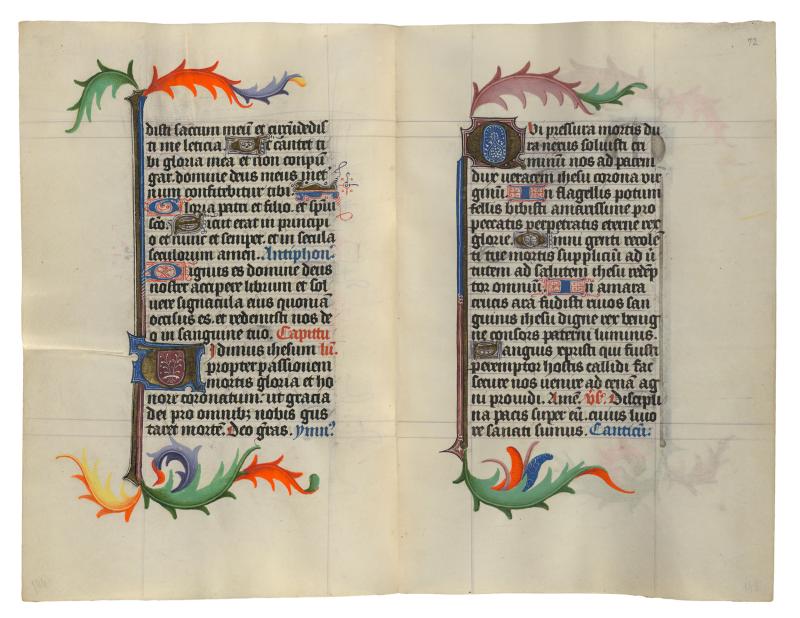 disti saccum meū et circūdedis
ti me leticia. Ut cātet ti
bi gloria mea et non conpū
gar. domine deus meus in eter
num confitebitur tibi
Gloria patri et filio. et spiri
sc̄o. Sicut erat in principi
o et nunc et semper. et in secula
seculorum amen. Antiphon̄
Dignus es domine deus
noster accipere librum et sol
uere signacula eius quoniā
occisus es. et redemisti nos de
o in sanguine tuo. Capitu
Uidimus ihesum lū.
propter passionem
mortis gloria et ho
nore coronatum. ut gracia
dei pro omnibꝫ nobis gus
taret mortē. Deo grās. ymn⁹.
72
Qui pressura mortis du
ra nexus soluisti cri
minū nos ad patem
dux ueracem ihesu corona uir
ginū. In flagellis potum
fellis bibisti amarissime pro
peccatis perpetratis eterne rex
glorie. Omni genti recole
ti tue mortis suppliciū ad ū
tutem ad salutem ihesu redēp
tor omniū. In amara
crucis ara fudisti riuos san
guinis ihesu digne rex benig
ne consors paterni luminis.
Sanguis xpristi qui fuisti
peremptor hostis callidi fac
secure nos uenire ad cenā ag
ni prouidi. Amē. v̄s. Discipli
na pacis super eū. cuius liuo
re sanati sumus. Canticū.